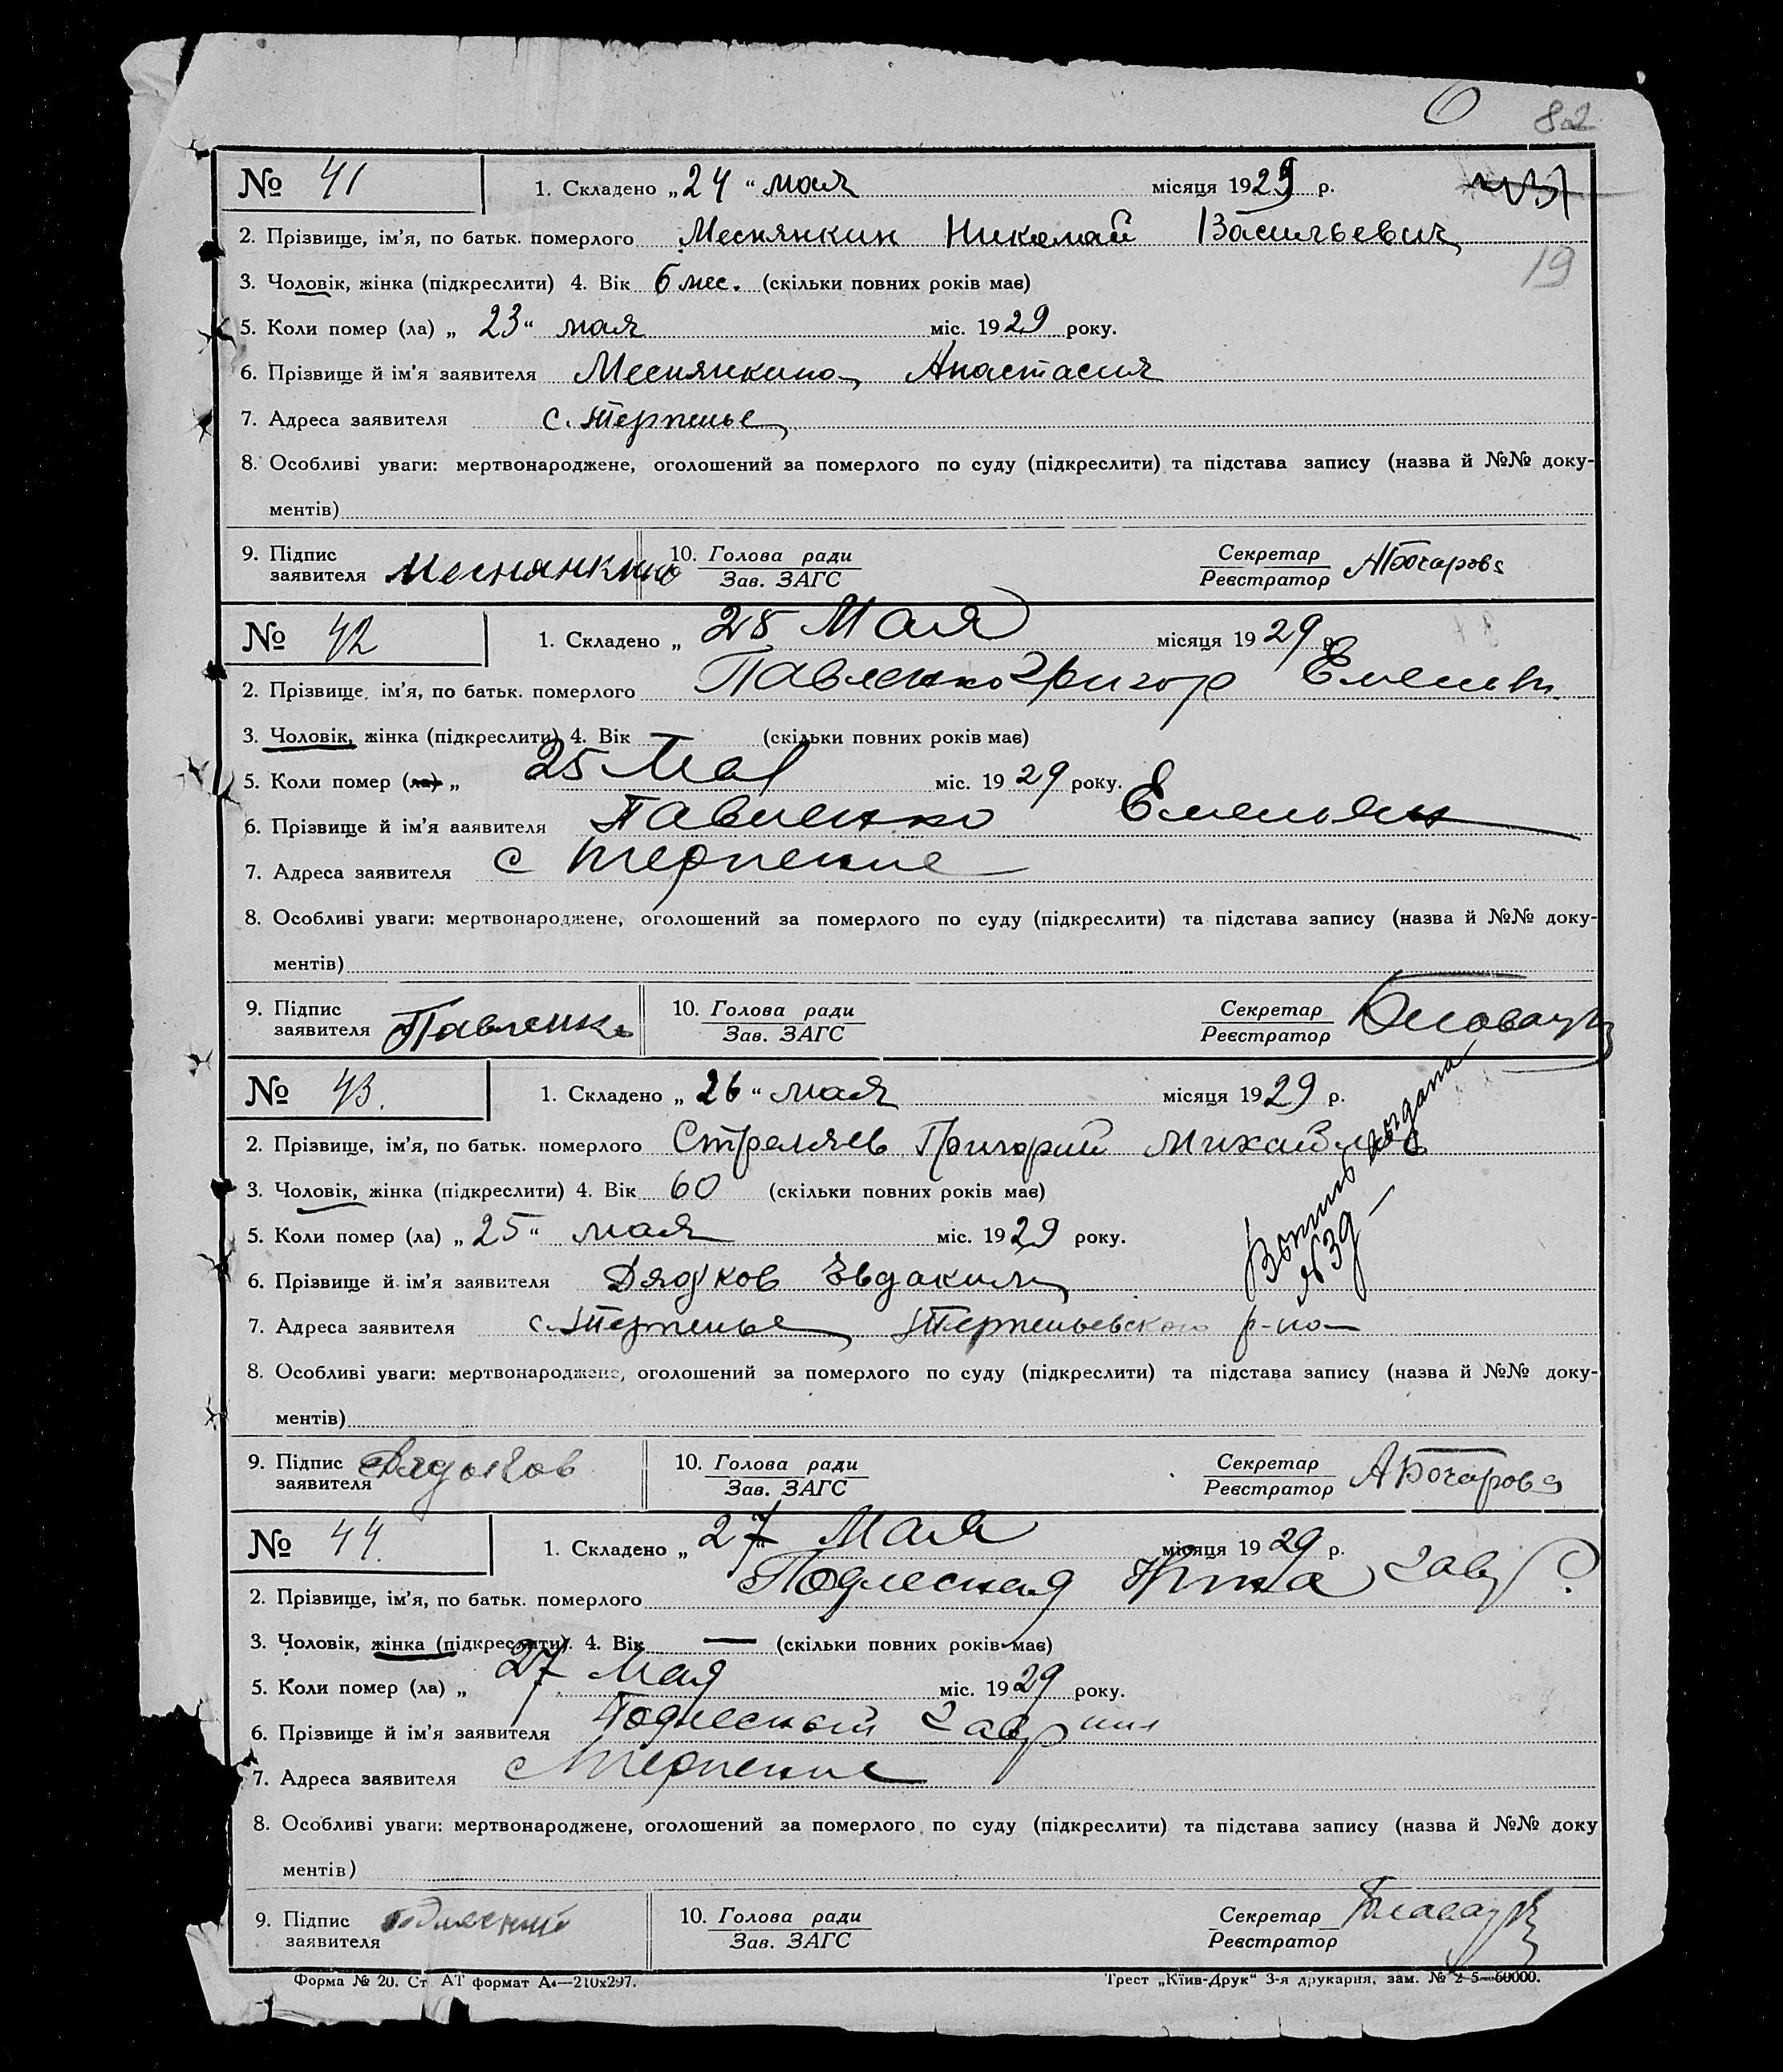 82
№ 41 1. Складено „24“ мая місяця 1929 р.
2. Прізвище, ім’я, по батьк. померлого Меснянкин Николай Васильевич
19
3. Чоловік, жінка (підкреслити) 4. Вік 6 мес. (скільки повних років має)
5. Коли помер (ла) „23“ мая міс. 1929 року.
6. Прізвище й ім’я заявителя Меснянкина Анастасия
7. Адреса заявителя с. Терпенье
8. Особливі уваги: мертвонароджене, оголошений за померлого по суду (підкреслити) та підстава запису (назва й №№ доку-
ментів)
9. Підпис заявителя Меснянкина 10. Голова ради Зав. ЗАГС Секретар Реєстратор АБочарова
№ 42 1. Складено „ 25 Мая місяця 1929 р.
2. Прізвище, ім’я, по батьк. померлого Павленко Григор Емельян
3. Чоловік, жінка (підкреслити) 4. Вік (скільки повних років має)
5. Коли помер (ла) „ 25 Мая міс. 1929 року.
6. Прізвище й ім’я ааявителя Павленко Емельян
7. Адреса заявителя с Терпение
8. Особливі уваги: мертвонароджене, оголошений за померлого по суду (підкреслити) та підстава запису (назва й №№ доку-
ментів)
9. Підпис заявителя Павленко 10. Голова ради Зав. ЗАГС Секретар Реєстратор
№ 43. 1. Складено „26“ мая місяця 1929 р.
2. Прізвище, ім’я, по батьк. померлого Стреляев Григорий Михайлов
3. Чоловік, жінка (підкреслити) 4. Вік 60 (скільки повних років має)
5. Коли помер (ла) „25“ мая міс. 1929 року.
6. Прізвище й ім’я заявителя Дядков Евдаким
7. Адреса заявителя с. Терпенье Терпеньевского р-на
выдана
№ 39
8. Особливі уваги: мертвонароджене, оголошений за померлого по суду (підкреслити) та підстава запису (назва й №№ доку-
ментів)
9. Підпис заявителя 10. Голова ради Зав. ЗАГС Секретар Реєстратор АБочарова
№ 44. 1. Складено „ 27 Мая місяця 1929 р.
2. Прізвище, ім’я, по батьк. померлого Подлесная Нина Гавр ?
3. Чоловік, жінка (підкреслити) 4. Вік — (скільки повних років має)
5. Коли помер (ла) „ 27 Мая міс. 1929 року.
6. Прізвище й ім’я заявителя Подлесный Гавриил
7. Адреса заявителя с Терпение
8. Особливі уваги: мертвонароджене, оголошений за померлого по суду (підкреслити) та підстава запису (назва й №№ доку
ментів)
9. Підпис заявителя Подлесный 10. Голова ради Зав. ЗАГС Секретар Реєстратор
Форма № 20. Ст АТ формат А4—210х297. Трест „Київ-Друк“ 3-я друкарня, зам. № 2-5—60000.